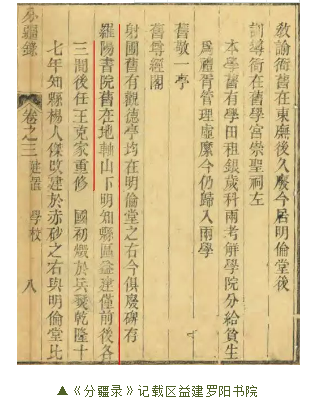 教諭衙舊在東廡後久廢今居明倫堂後
訓導衙在舊學宮崇聖祠左
本學舊有學田租銀歲科兩考解學院分給貧生
爲禮胥管理虛縻今仍歸入兩學
舊敬一亭
舊尊經閣
射圃舊有觀德亭均在明倫堂之右今俱廢碑有
羅陽書院舊在地軸山下明知縣區益建僅前後各
三間後任王克家重修 國初燬於兵燹乾隆十
七年知縣楊人傑改建於赤砂之右與明倫堂比
分疆錄 卷之三 建置 學校 八
▲《分疆录》记载区益建罗阳书院